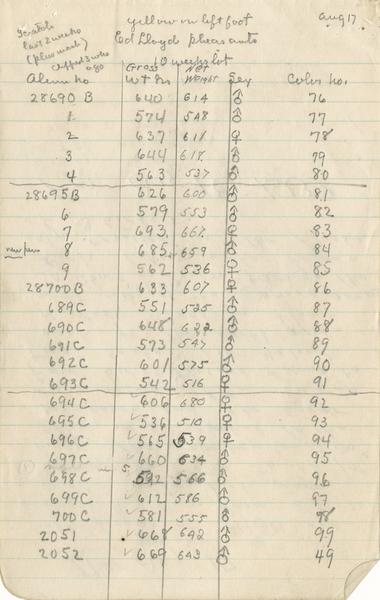 yellow on left foot
Aug 17
Ed Lloyd pheasants
Scratch
last 2 weeks
(plus mash)
10 weeks lot
Gross Net
Alum no Wt Gm Weight Sex Color no.
28690 B 640 614 ♂ 76
1 574 548 ♂ 77
2 637 611 ♀ 78
3 644 618 ♂ 79
4 563 537 ♂ 80
28695B 626 600 ♂ 81
6 579 553 ♂ 82
7 693 667 ♀ 83
new pen 8 685 659 ♂ 84
9 562 536 ♀ 85
28700B 633 607 ♀ 86
689C 551 525 ♂ 87
690C 648 622 ♂ 88
691C 573 547 ♂ 89
692C 601 575 ♂ 90
693C 542 516 ♀ 91
694C ✓ 606 680 ♀ 92
695C ✓ 536 510 ♀ 93
696C ✓ 565 539 ♀ 94
697C ✓ 660 634 ♂ 95
698C 592 566 ♂ 96
699C ✓ 612 586 ♂ 97
700C ✓ 581 555 ♂ 98
2051 ✓ 668 642 ♂ 99
2052 ✓ 669 643 ♂ 49